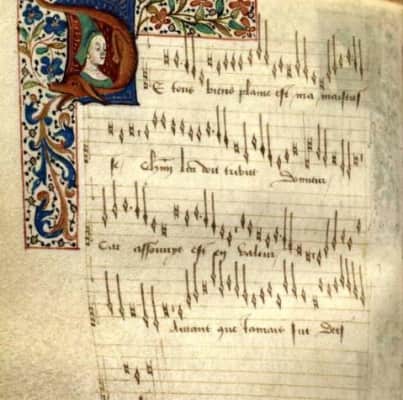 De tous biens plaine est ma maistres
se Chun lui doit tribut Donneur
Car assouuye est en valeur
Autant que iamais fut Dees